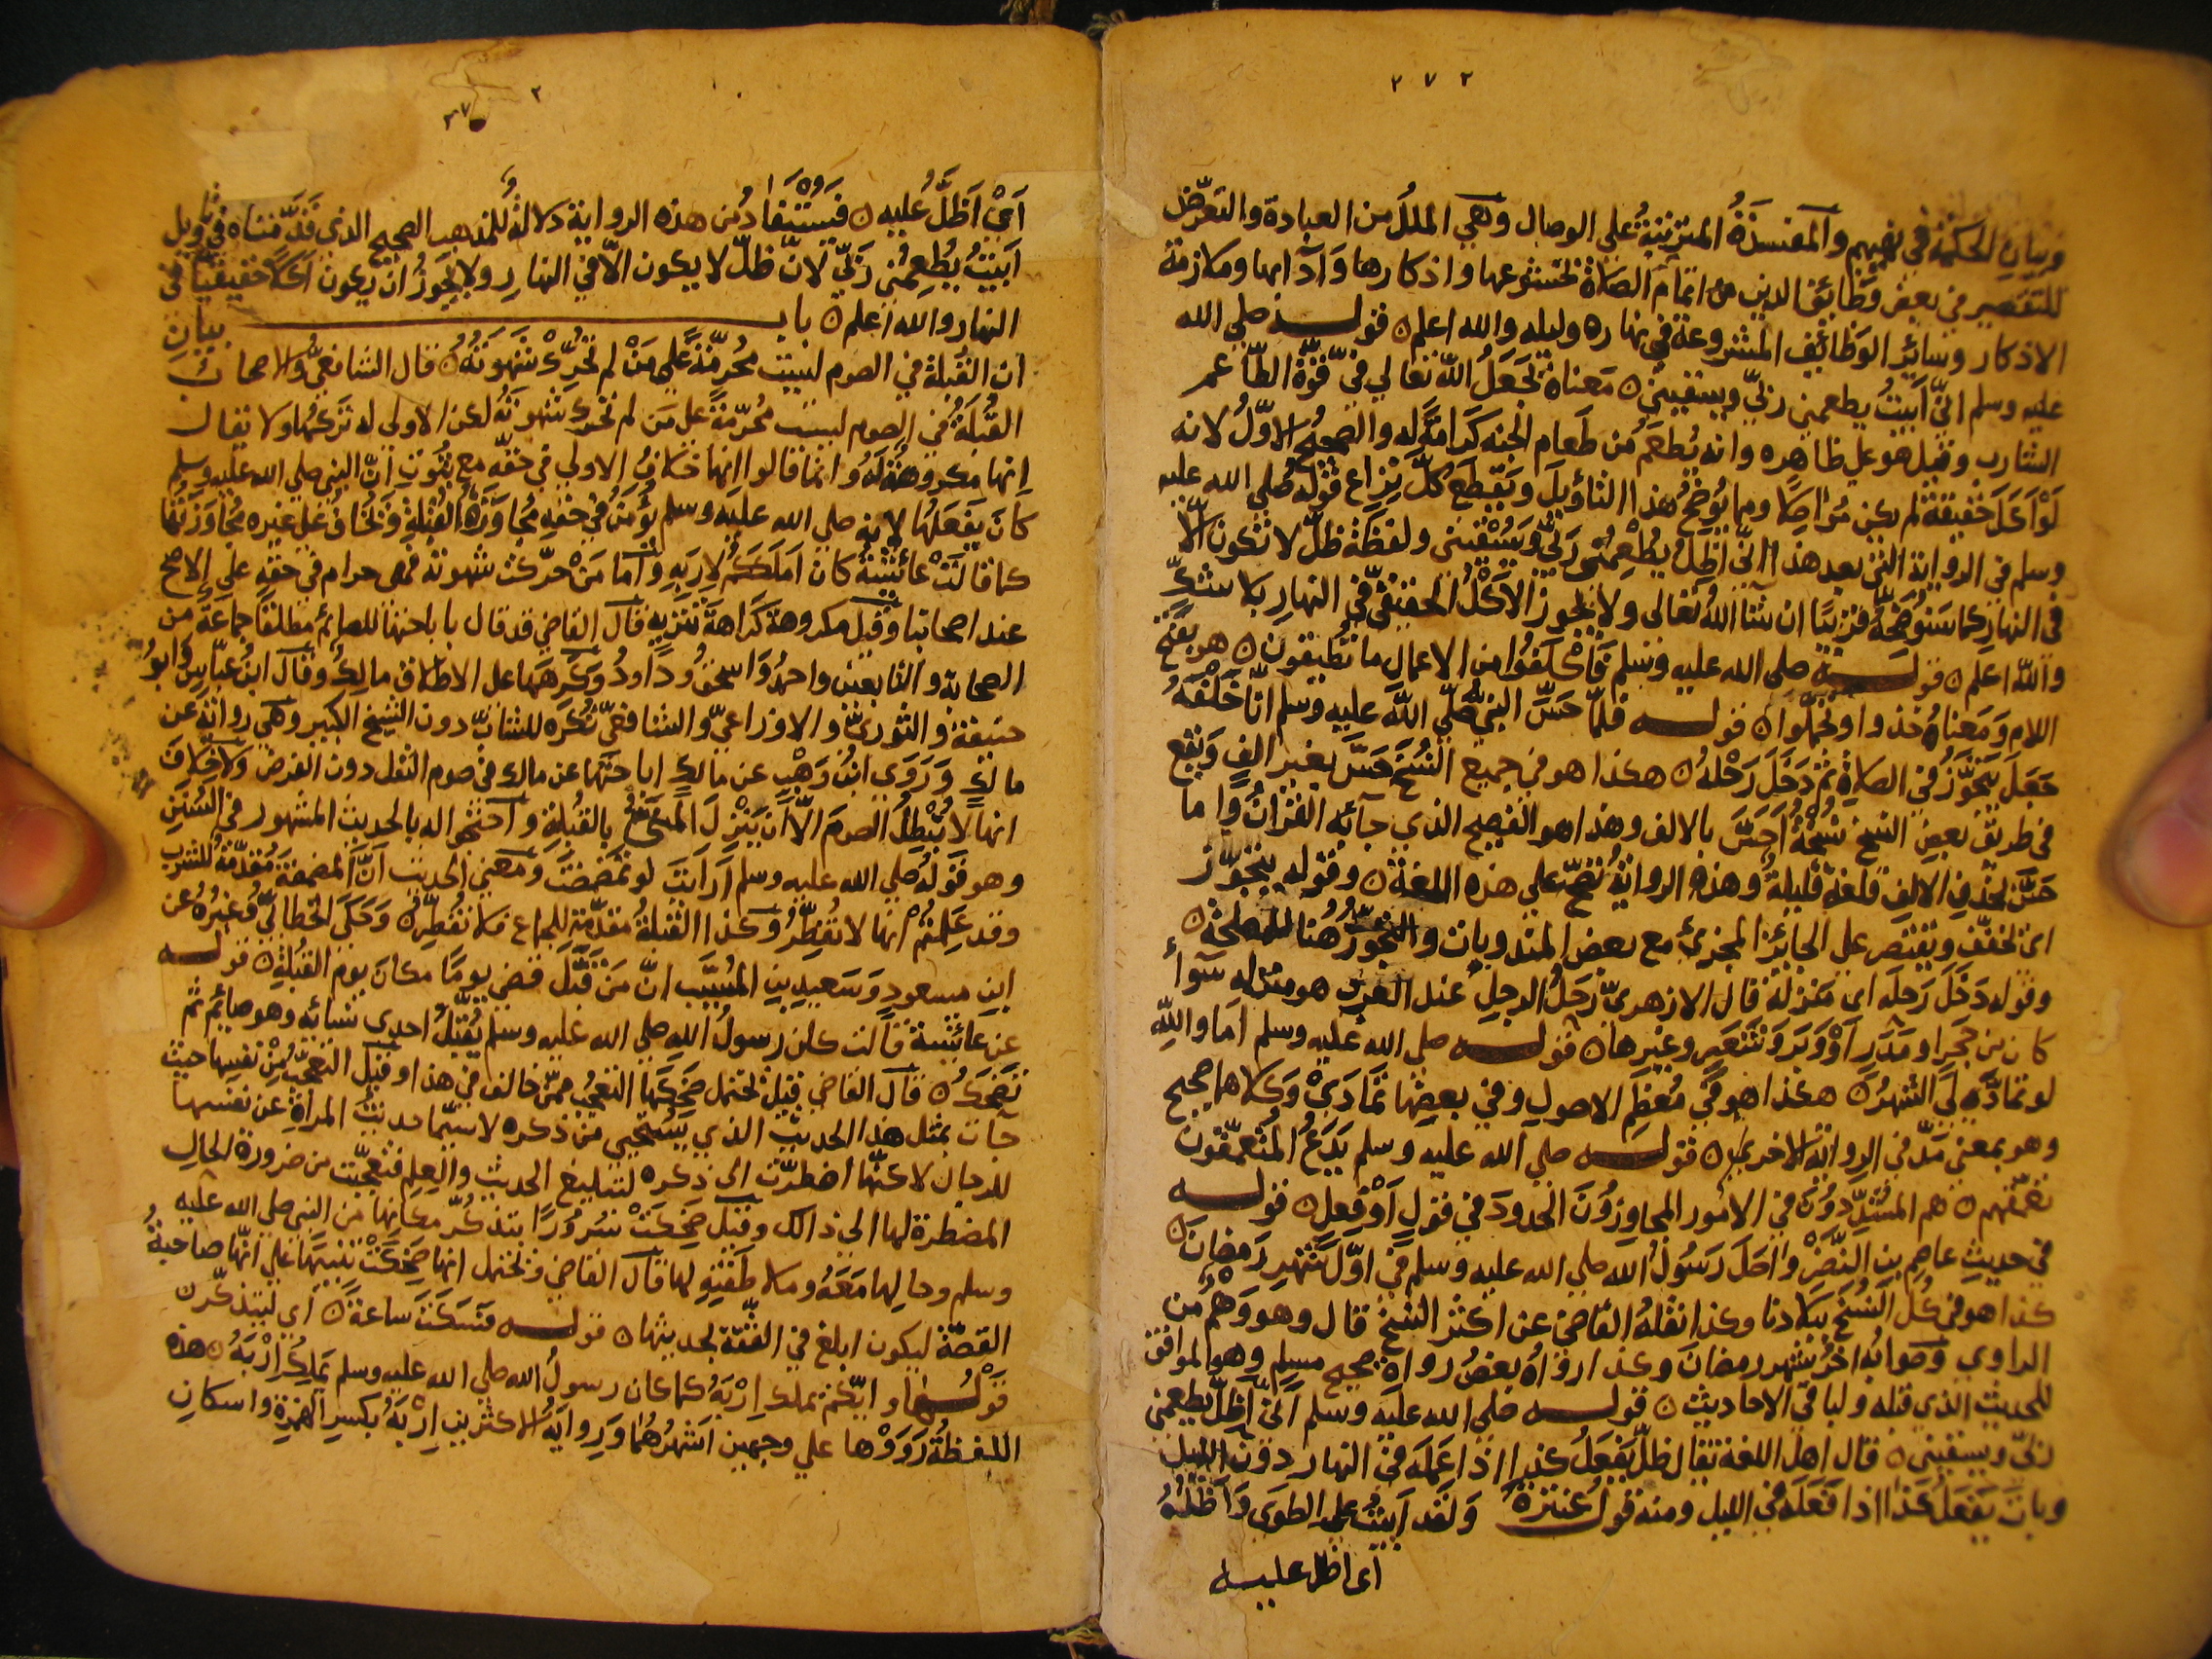 ٢٧٢
وبيان الحكمة في نهيهم والمفسدة المترتبة على الوصال وهي الملل من العبادة والتعرض
للتقصير في بعض وظائف الدين من اتمام الصلاة بخشوعها واذكارها وآدابها وملازمة
الاذكار وسائر الوظائف المشروعة في نهاره وليله والله اعلم ن قوله صلى الله
عليه وسلم اني ابيت يطعمني ربي ويسقيني ن معناه يجعل الله تعالى في قوة الطاعم
الشارب وقيل هو على ظاهره وانه يطعم من طعام الجنه كرامة له والصحيح الاول لانه
لو اكل حقيقة لم يكن مواصلا ومما يوضح هذا التأويل ويقطع كل نزاع قوله صلى الله عليه
وسلم في الرواية التي بعد هذا اني اظل يطعمني ربي ويسقيني ولفظة ظل لا تكون الا
في النهار كما سنوضحه قريبا ان شا الله تعالى ولا يجوز الاكل الحقيقي في النهار بلا شك
والله اعلم ن قوله صلى الله عليه وسلم فاكلفوا من الاعمال ما تطيقون ن هو بفتح
اللام ومعناه خذوا وتحملوا ن قوله فلما حس النبي صلى الله عليه وسلم انا خلفه
جعل يتجوز في الصلاة ثم دخل رحله ن هكذا هو في جميع النسخ حس بغير الف ويقع
في طريق بعض النسخ نسخة احس بالالف وهذا هو الفصيح الذي جا به القران واما
حس بحذف الالف فلغة قليلة وهذه الرواية تصح على هذه اللغة ن وقوله يتجوز
اي يخفف ويقتصر على الجايز المجزئ مع بعض المندوبات والتجوز هنا للمصلحة ن
وقوله دخل رحله اى منزله قال الازهري رحل الرجل عند العرب هو منزله سوآء
كان من حجر او مدر او وبر وشعر وغيرها ن قوله صلى الله عليه وسلم اما والله
لو تماد لي الشهر ن هكذا هو في معظم الاصول وفي بعضها تمادى وكلاهما صحيح
وهو بمعنى مد في الرواية الاخرى ن قوله صلى الله عليه وسلم يدع المتعمقون
تعمقهم ن هم المشددون في الامور المجاوزون الحدود في قول او فعل ن قوله
في حديث عاصم بن النضر واصل رسول الله صلى الله عليه وسلم في اول شهر رمضان ن
كذا هو في كل النسخ ببلادنا وكذا نقله القاضي عن اكثر النسخ قال وهو وهم من
الراوي وصوابه اخر شهر رمضان وكذا رواه بعض رواة صحيح مسلم وهو الموافق
للحديث الذي قبله ولباقي الاحاديث ن قوله صلى الله عليه وسلم اني اظل يطعمني
ربي ويسقيني ن قال اهل اللغة يقال ظل يفعل كذا اذا عمله في النهار دون الليل
وبات يفعل كذا اذا فعله في الليل ومنه قول عنترة ولقد ابيت على الطوى واظله
اى اظل عليه
٢
اى اظل عليه ن فيستفاد من هذه الرواية دلالة للمذهب الصحيح الذي قدمناه في تأويل
ابيت يطعمني ربي لان ظل لا يكون الا في النهار ولا يجوز ان يكون اكلا حقيقيا في
النهار والله اعلم ن باب بيان
ان القبلة في الصوم ليست محرمة على من لم تحرك شهوته ن قال الشافعي والاصحاب
القبلة في الصوم ليست محرمة على من لم تحرك شهوته لكن الاولى له تركها ولا يقال
انها مكروهة له وانما قالوا انها خلاف الاولى في حقه مع ثبوت ان النبي صلى الله عليه وسلم
كان يفعلها لانه صلى الله عليه وسلم يؤمن في حقه مجاوزة القبلة ويخاف على غيره مجاوزتها
كما قالت عائشة كان املككم لاربه واما من حركت شهوته فهي حرام في حقه على الاصح
عند اصحابنا وقيل مكروهة كراهة تنزيه قال القاضي قد قال باباحتها للصائم مطلقا جماعة من
الصحابة والتابعين واحمد واسحق وداود وكرهها على الاطلاق مالك وقال ابن عباس وابو
حنيفة والثوري والاوزاعي والشافعي تكره للشاب دون الشيخ الكبير وهي رواية عن
مالك وروى ابن وهب عن مالك اباحتها عن مالك في صوم النفل دون الفرض ولا خلاف
انها لا تبطل الصوم الا ان ينزل المني بالقبلة واحتجوا له بالحديث المشهور في السنن
وهو قوله صلى الله عليه وسلم ارايت لو تمضمضت ومعنى الحديث ان المضمضة مقدمة للشرب
وقد علمتم انها لا تفطر وكذا القبلة مقدمة للجماع فلا تفطر ن وحكى الخطابي وغيره عن
ابن مسعود وسعيد بن المسيب ان من قبل قضى يوما مكان يوم القبلة ن قوله
عن عائشة قالت كان رسول الله صلى الله عليه وسلم يقبل احدى نسائه وهو صائم ثم
تضحك ن قال القاضي قيل يحتمل ضحكها التعجب ممن خالف في هذا وقيل التعجب من نفسها حيث
جات بمثل هذا الحديث الذي يستحيى من ذكره لاسيما حديث المراة عن نفسها
للرجال لاكنها اضطرت الى ذكره لتبليغ الحديث والعلم فتعجبت من ضرورة الحال
المضطرة لها الى ذالك وقيل ضحكت سرورا بتذكر مكانها من النبي صلى الله عليه
وسلم وحالها معه وملاطفته لها قال القاضي ويحتمل انها ضحكت تنبيها على انها صاحبة
القصة ليكون ابلغ في الثقة بحديثها ن قوله فسكت ساعة ن اى ليتذكر ن
قولها وايكم يملك اربه كما كان رسول الله صلى الله عليه وسلم يملك اربه ن هذه
اللفظة رووها على وجهين اشهرهما ورواية الاكثرين اربه بكسر الهمزة واسكان